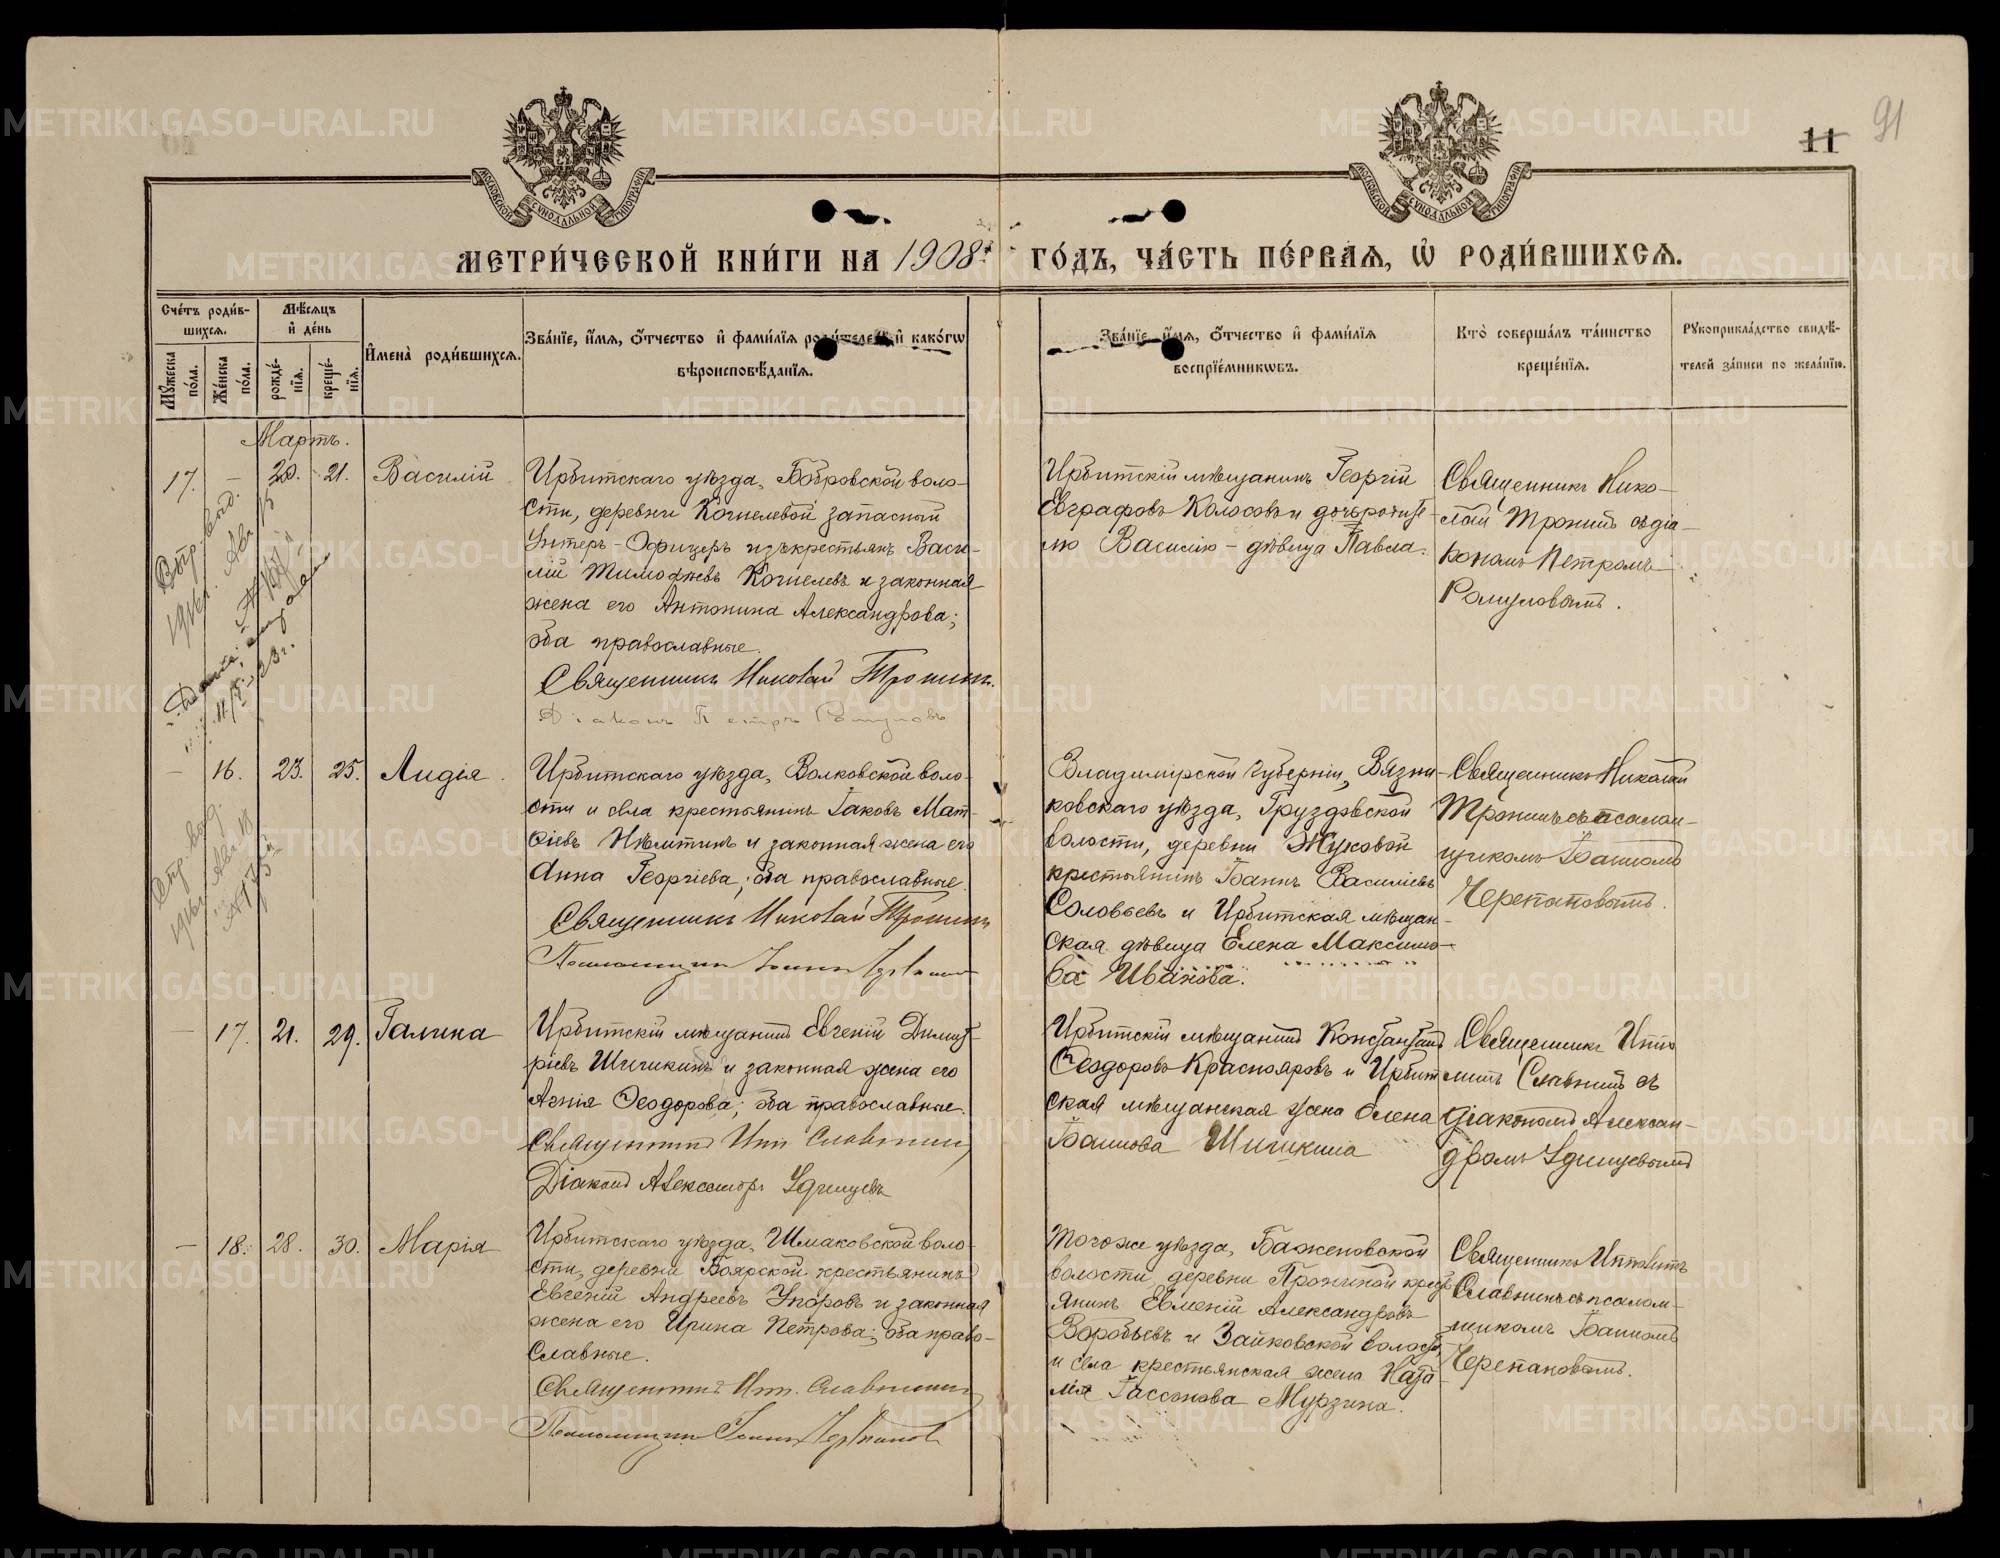 91
11
МОСКОВСКОЙ СѴНОДАЛЬНОЙ ТИПОГРАФІИ
МОСКОВСКОЙ СѴНОДАЛЬНОЙ ТИПОГРАФІИ
МЕТРИ́ЧЕСКОЙ КНИ́ГИ НА 1908й ГО́ДЪ, ЧА́СТЬ ПЕ́РВАѦ, Ѡ҆ РОДИ́ВШИХСѦ.
Сче́тъ роди́в-
шихсѧ.
Мꙋ́жеска
по́ла.
Же́нска
по́ла.
Мѣ́сѧцъ
и҆ де́нь
рожде́-
нїѧ.
креще́-
нїѧ.
И҆мена̀ роди́вшихсѧ.
Зва́нїе, и҆́мѧ, ѻ҆́тчество и҆ фами́лїѧ роди́телей и҆ како́гѡ
вѣроисповѣ́данїѧ.
Зва́нїе, и҆́мѧ, ѻ҆́тчество и҆ фами́лїѧ
воспрїе́мникѡвъ.
Кто̀ соверша́лъ та́инство
креще́нїѧ.
Рꙋкоприкла́дство свидѣ́-
телей за́писи по жела́нїю.
Мартъ.
17. – 20. 21. Василій
Ирбитскаго уѣзда, Бобровской воло-
сти, деревни Кочнелевой запасный
Унтеръ-Офицеръ изъ крестьянъ Васи-
лій Тимофеевъ Кочнелевъ и законная
жена его Антонина Александрова;
оба православные.
Священникъ Николай Тронинъ.
Діаконъ Петръ Ромуловъ
Ирбитскій мѣщанинъ Георгій
Евграфовъ Колосовъ и дочь родите-
лю Василію – дѣвица Павла.
Священникъ Нико-
лай Тронинъ съ діа-
кономъ Петромъ
Ромуловымъ.
– 16. 23. 25. Лидія.
Ирбитскаго уѣзда, Волковской воло-
сти и села крестьянинъ Іаковъ Мат-
ѳіевъ Нѣмтинъ и законная жена его
Анна Георгіева; оба православные.
Священникъ Николай Тронинъ
Псаломщикъ Іоаннъ Черепановъ
Владимірской губерніи, Вязни-
ковскаго уѣзда, Груздовской
волости, деревни Жуковой
крестьянинъ Іоаннъ Василіевъ
Соловьевъ и Ирбитская мѣщан-
ская дѣвица Елена Максимо-
ва Иванова.
Священникъ Николай
Тронинъ съ псалом-
щикомъ Іоанномъ
Черепановымъ.
– 17. 21. 29. Галина
Ирбитскій мѣщанинъ Евгеній Димит-
ріевъ Шишкинъ и законная жена его
Агнія Ѳеодорова; оба православные.
Священникъ Ипп. Славнинъ
Діаконъ Александръ Удинцевъ
Ирбитскій мѣщанинъ Константинъ
Ѳеодоровъ Краснояровъ и Ирбит-
ская мѣщанская жена Елена
Іоаннова Шишкина
Священникъ Иппо-
литъ Славнинъ съ
діакономъ Алексан-
дромъ Удинцевымъ
– 18. 28. 30. Марія
Ирбитскаго уѣзда, Шмаковской воло-
сти, деревни Боярской крестьянинъ
Евгеній Андреевъ Упоровъ и законная
жена его Ирина Петрова; оба право-
славные.
Священникъ Ипп. Славнинъ
Псаломщикъ Іоаннъ Черепановъ
Того же уѣзда, Баженовской
волости, деревни крестья-
янинъ Евменій Александровъ
Воробьевъ и Зайковской волости
и села крестьянская жена Ната-
лія Іассонова Мурзина.
Священникъ Ипполитъ
Славнинъ съ псалом-
щикомъ Іоанномъ
Черепановымъ.